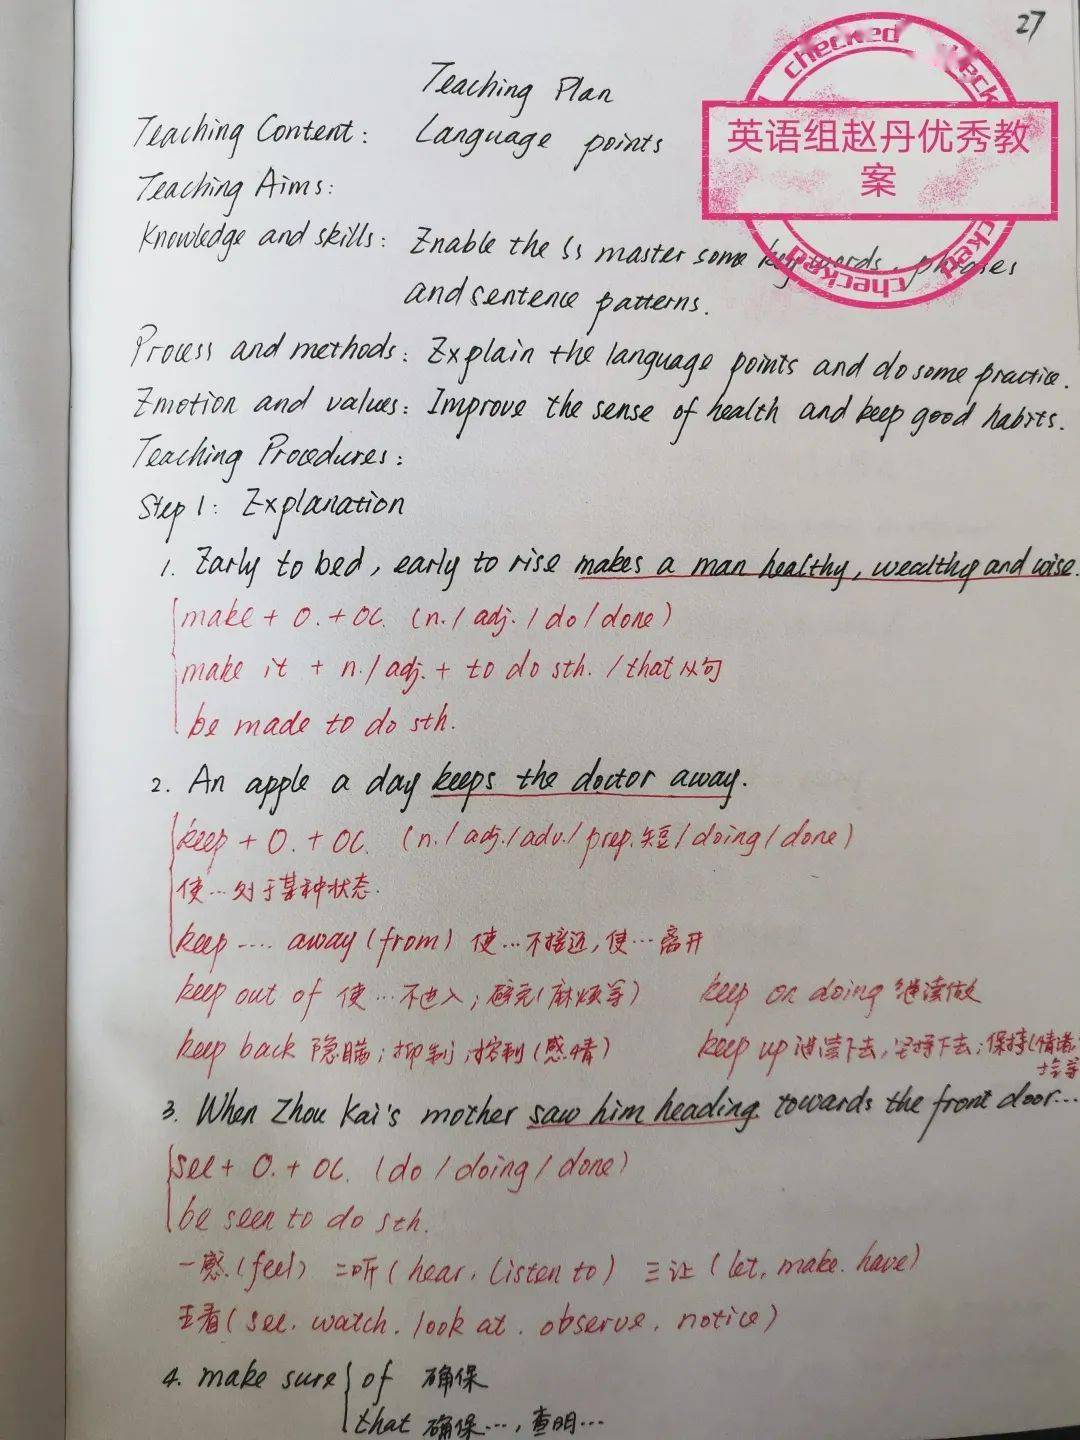 27
checked
checked
英语组赵丹优秀教
案
checked
checked
Teaching Plan
Teaching Content: Language points
Teaching Aims:
Knowledge and skills: Enable the Ss master some key words, phrases
and sentence patterns.
Process and methods: Explain the language points and do some practice.
Emotion and values: Improve the sense of health and keep good habits.
Teaching Procedures:
Step 1: Explanation
1. Early to bed, early to rise makes a man healthy, wealthy and wise.
make + O. + OC. (n. / adj. / do / done)
make it + n. / adj. + to do sth. / that 从句
be made to do sth.
2. An apple a day keeps the doctor away.
keep + O. + OC. (n. / adj. / adv. / prep. 短 / doing / done)
使…处于某种状态.
keep .... away (from) 使…不接近, 使…离开
keep out of 使…不进入; 避免(麻烦等) keep on doing 继续做
keep back 隐瞒; 抑制; 控制(感情) keep up 继续下去, 坚持下去; 保持(情绪,
等
3. When Zhou Kai's mother saw him heading towards the front door...
see + O. + OC. (do / doing / done)
be seen to do sth.
一感 (feel) 二听 (hear, listen to) 三让 (let, make, have)
五看 (see, watch, look at, observe, notice)
4. make sure of 确保
that 确保…, 查明…